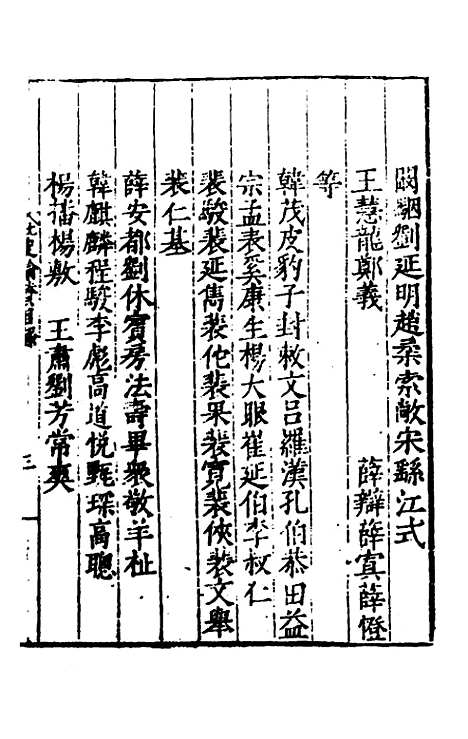 闞駰劉延明趙柔索敞宋繇江式
王慧龍鄭義　薛辯薛寘薛憕
等
韓茂皮豹子封敕文呂羅漢孔伯恭田益
宗孟表奚康生楊大眼崔延伯李叔仁
裴駿裴延雋裴佗裴果裴寬裴俠裴文舉
裴仁基
薛安都劉休賓房法壽畢衆敬羊祉
韓麒麟程駿李彪高道悅甄琛高聰
楊播楊敷　王肅劉芳常爽
史論贊目錄　三